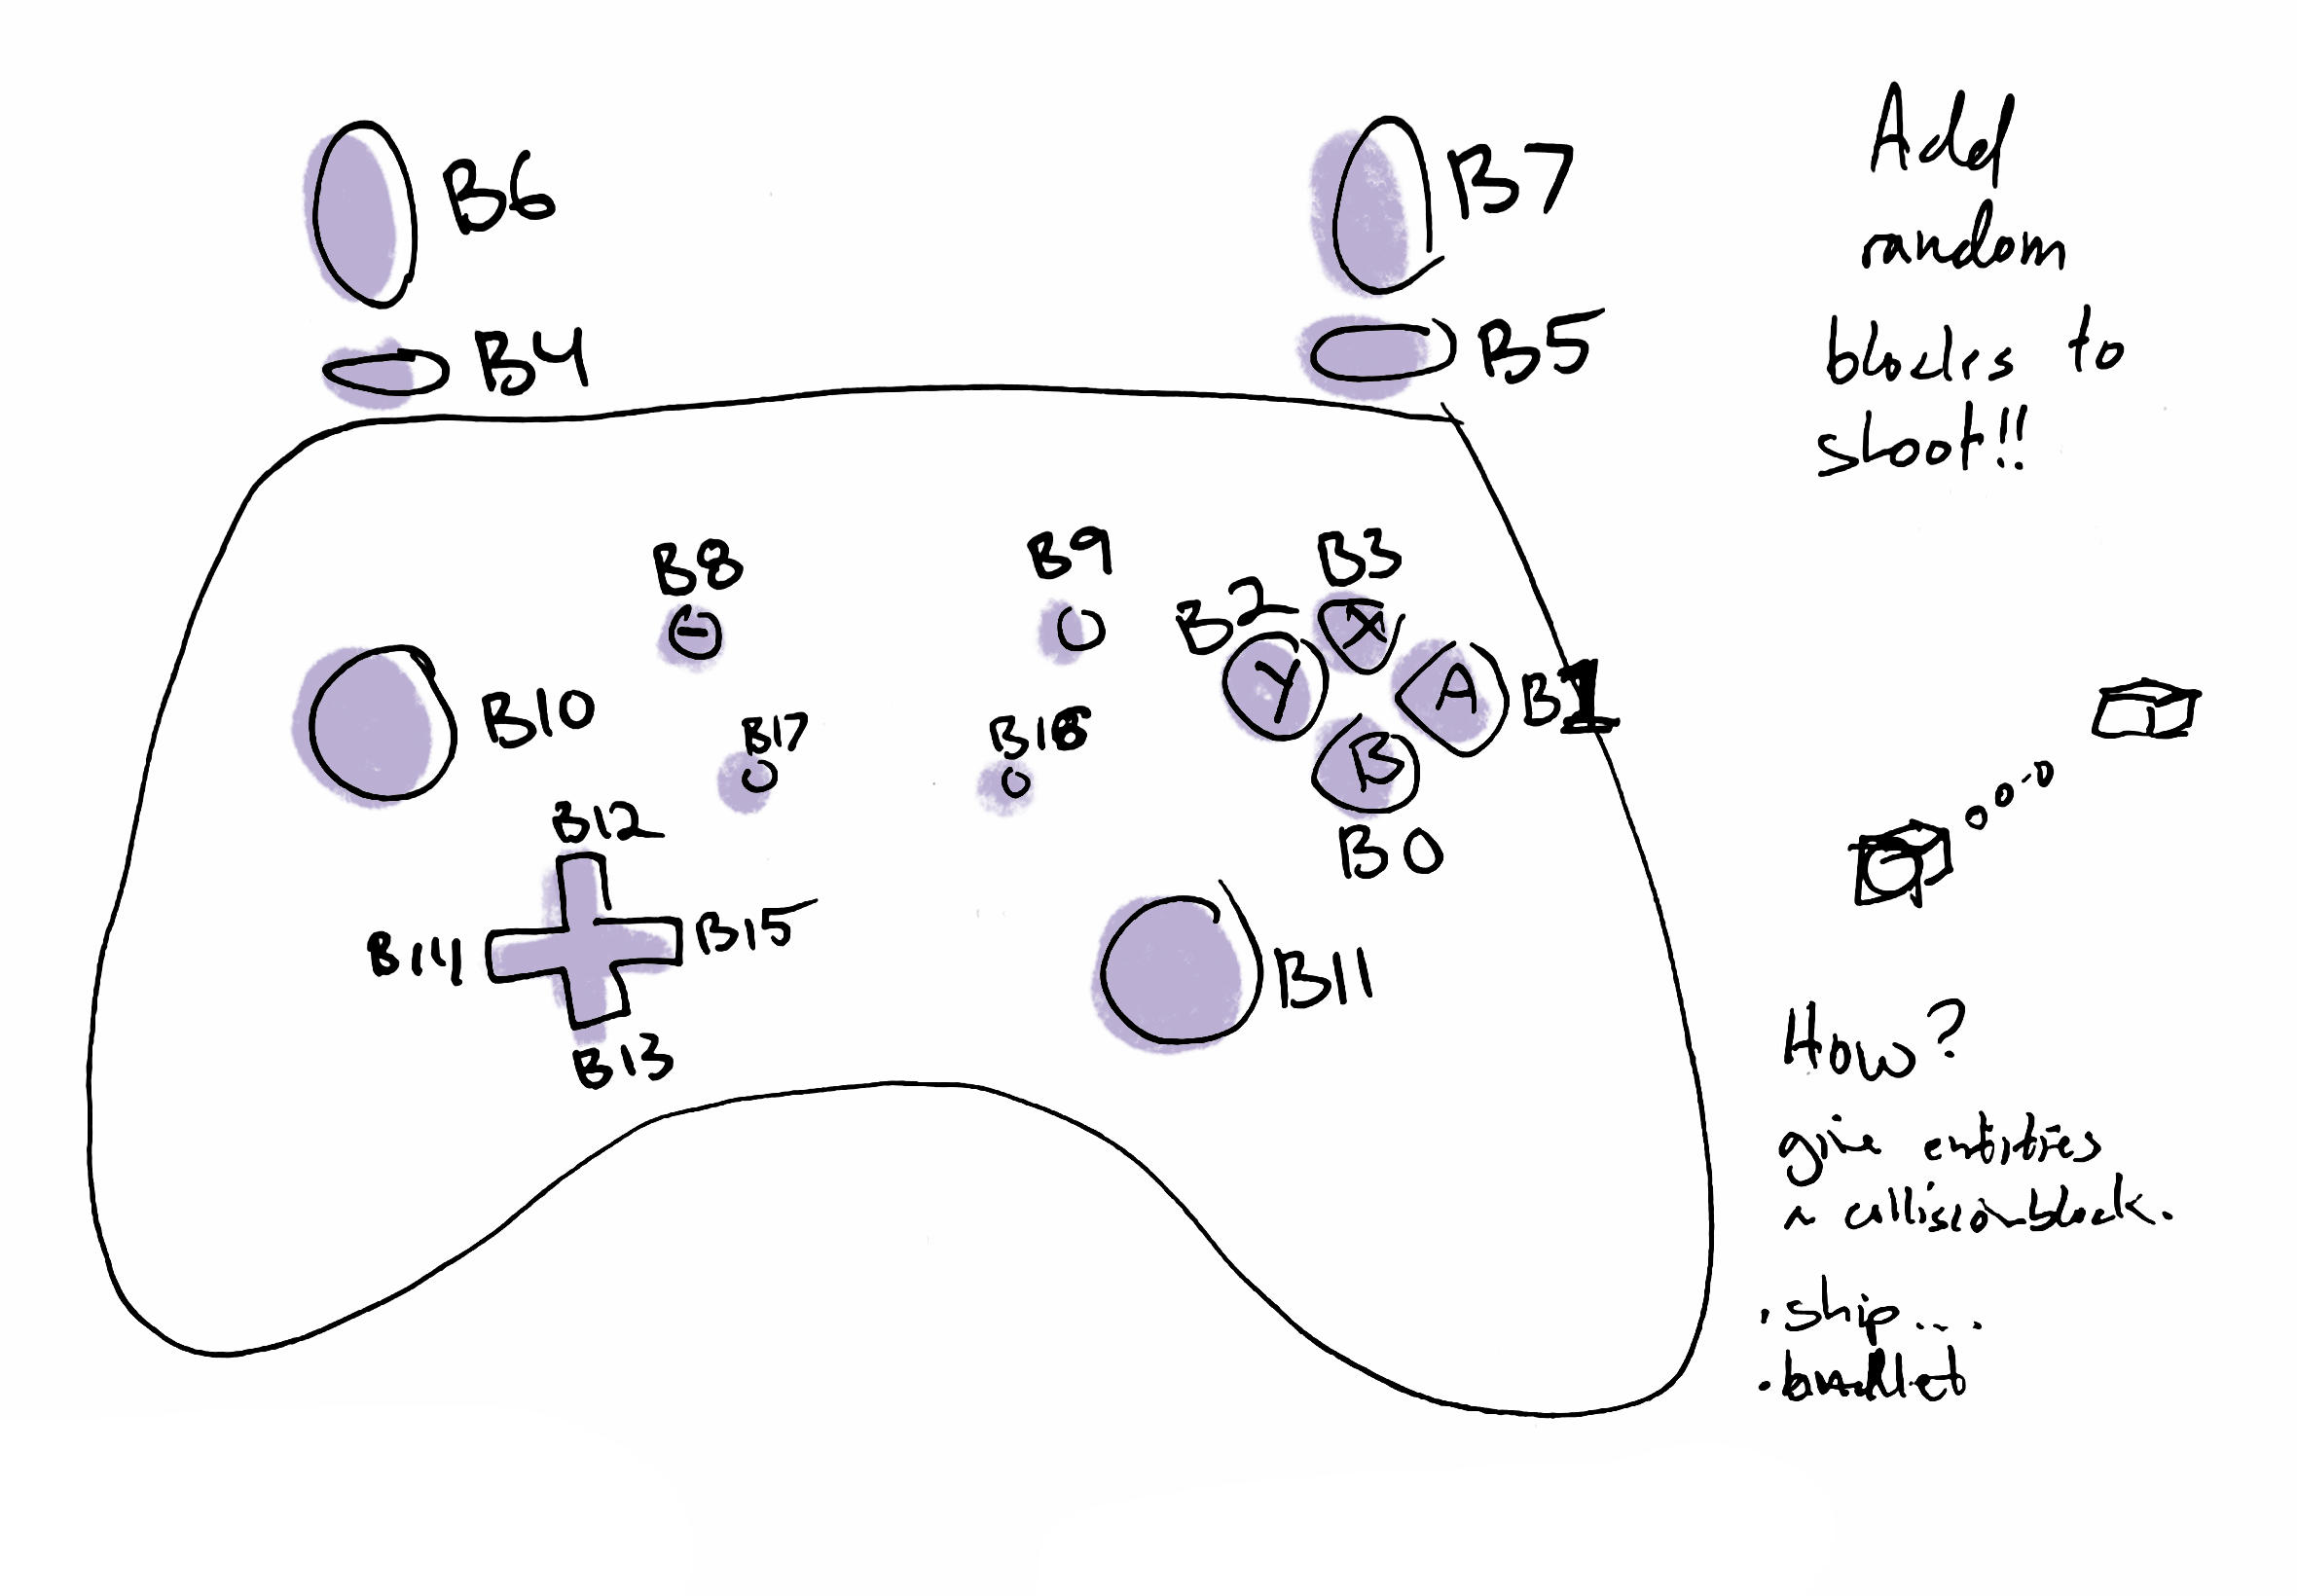 B6
B7
B4
B5
B8
B9
B3
B2
X
Y
A
B1
B10
B17
B16
B
B0
B12
B14
B15
B13
B11
Add
random
blocks to
shoot!!
How?
give entities
a collision block.
• ship...
• bullet